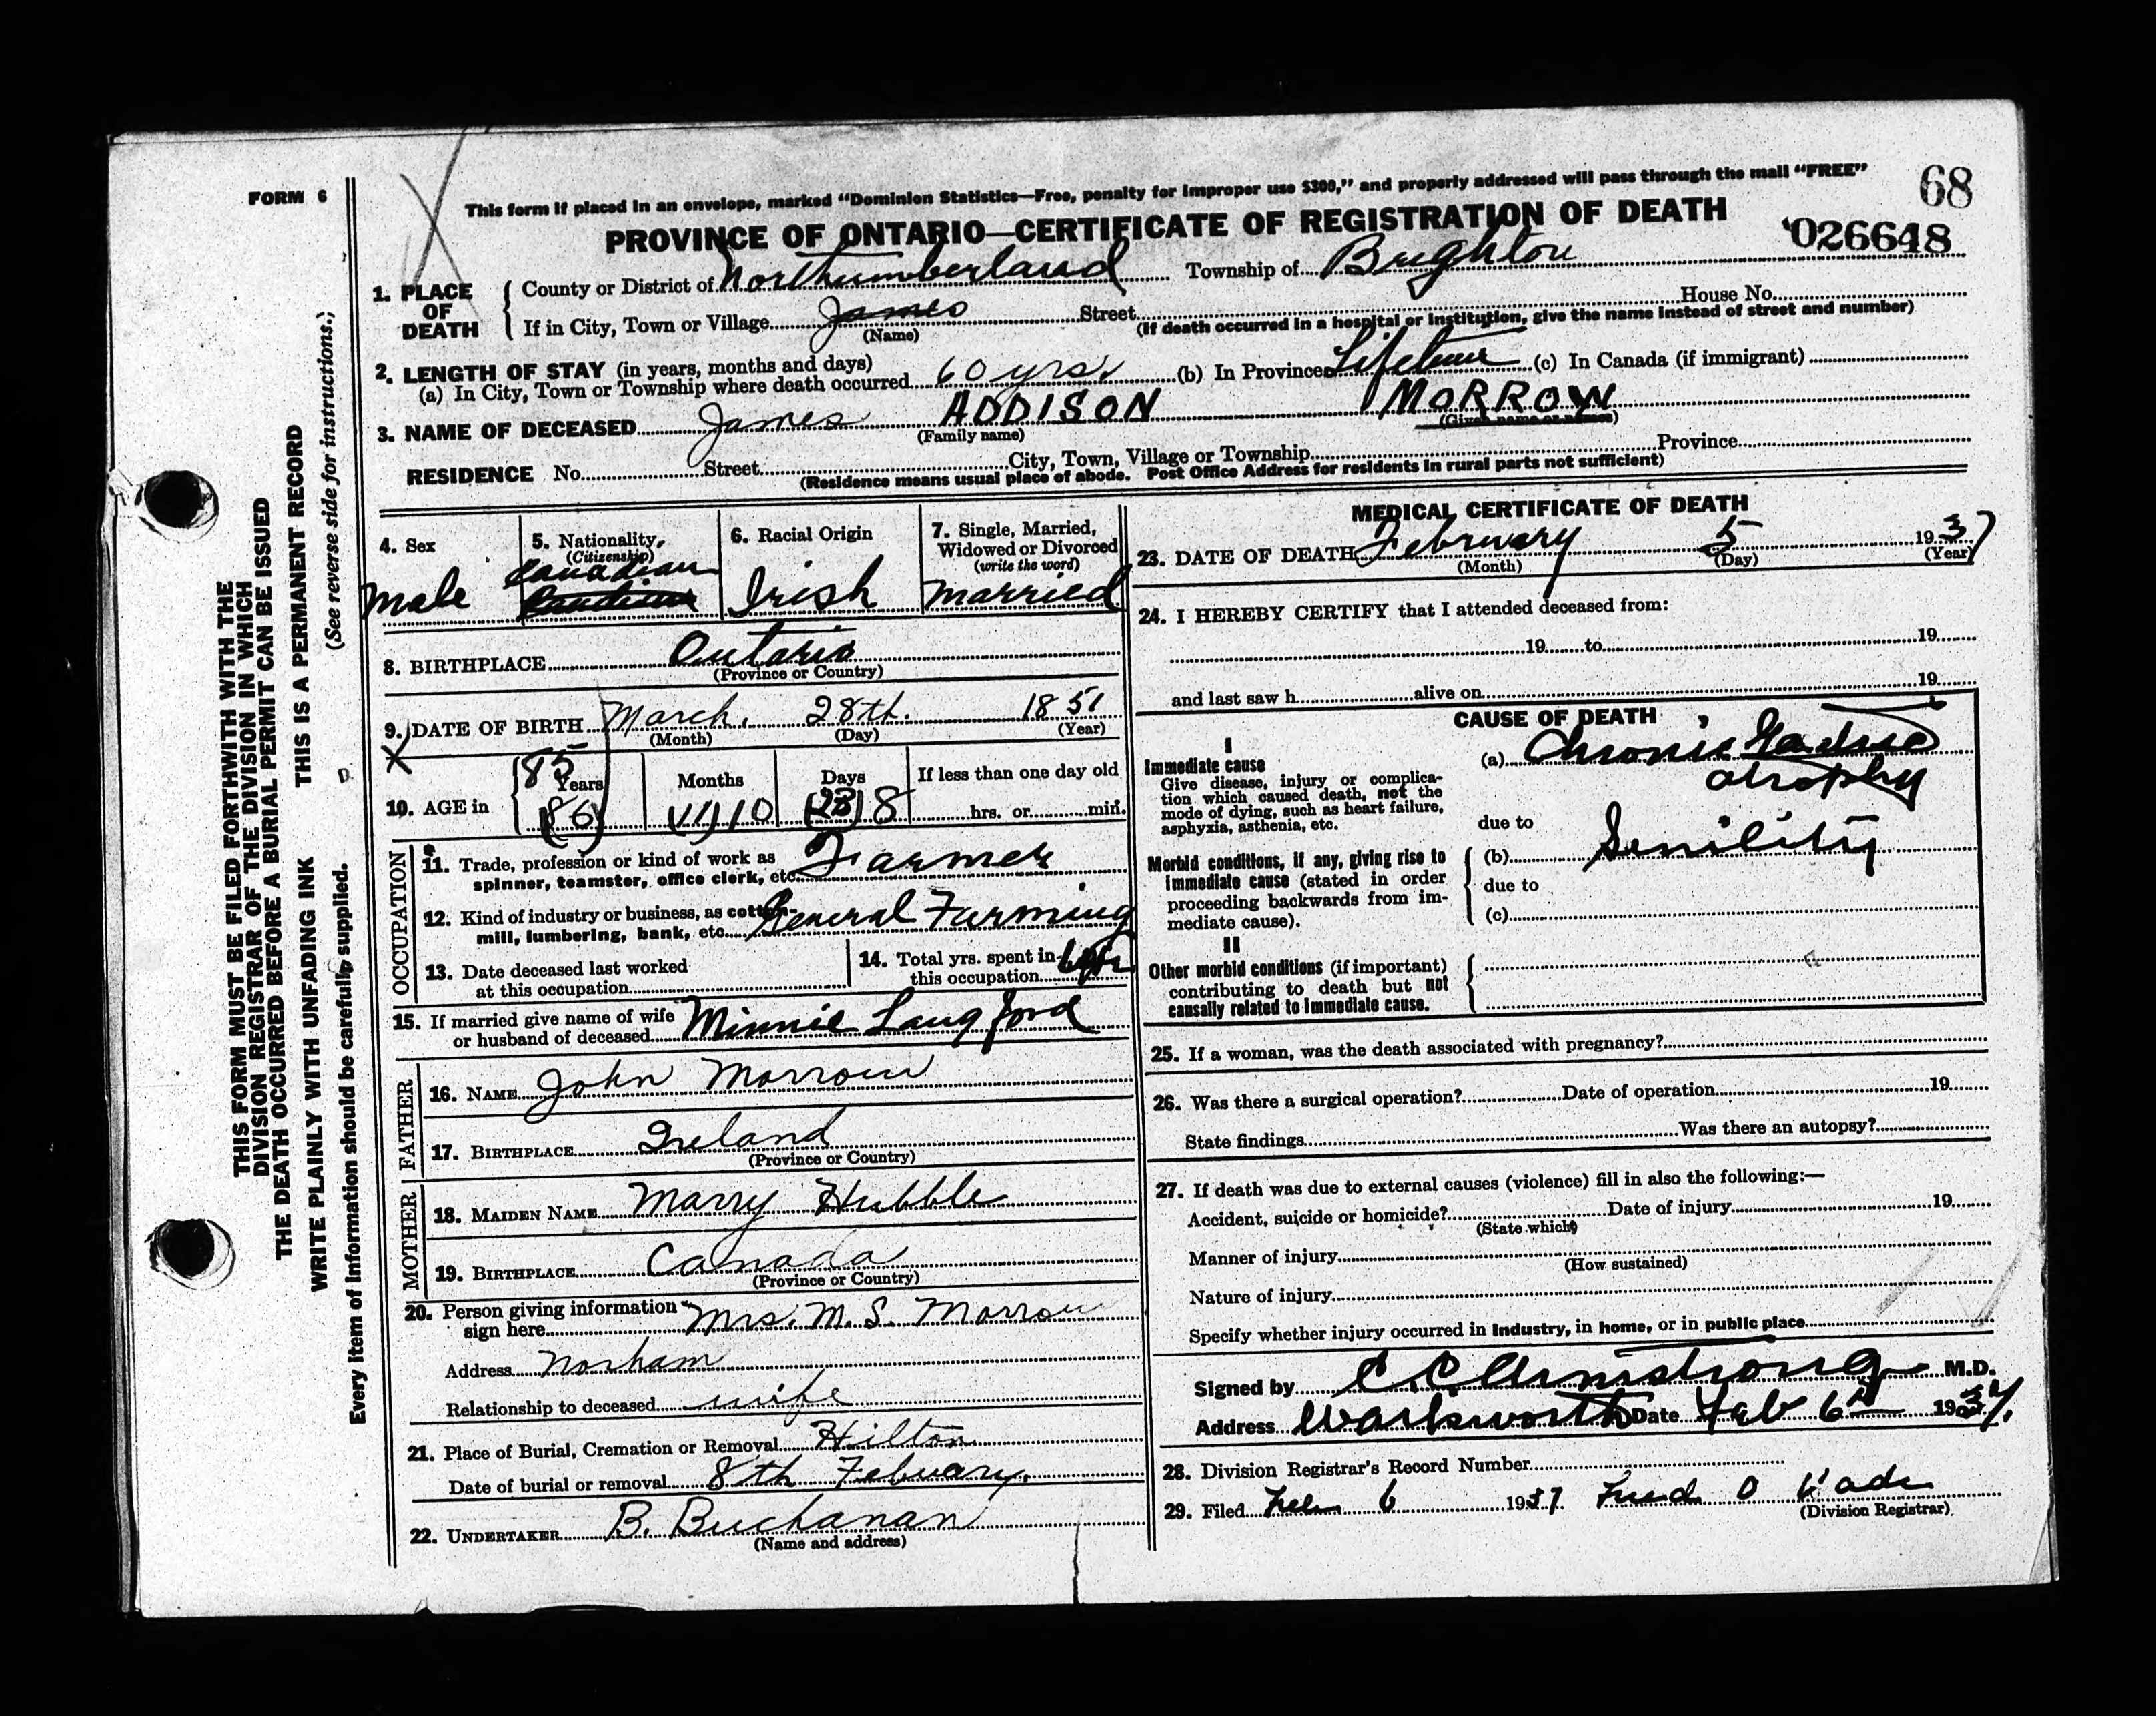 68
FORM 6
This form if placed in an envelope, marked "Dominion Statistics—Free, penalty for improper use $300," and properly addressed will pass through the mail "FREE"
PROVINCE OF ONTARIO—CERTIFICATE OF REGISTRATION OF DEATH
026648
1. PLACE OF DEATH
County or District of Northumberland Township of Brighton
If in City, Town or Village James Street House No.
(Name) (If death occurred in a hospital or institution, give the name instead of street and number)
2. LENGTH OF STAY (in years, months and days)
(a) In City, Town or Township where death occurred 60 yrs. (b) In Province Lifetime (c) In Canada (if immigrant)
3. NAME OF DECEASED James ADDISON MORROW
(Family name) (Given name or names)
RESIDENCE No. Street City, Town, Village or Township Province
(Residence means usual place of abode. Post Office Address for residents in rural parts not sufficient)
4. Sex
Male
5. Nationality
(Citizenship)
Canadian
6. Racial Origin
Irish
7. Single, Married,
Widowed or Divorced
(write the word)
married
8. BIRTHPLACE Ontario
(Province or Country)
9. DATE OF BIRTH March. 28th. 1851
(Month) (Day) (Year)
10. AGE in
85 Years (86)
Months (11) 10
Days (23) 8
If less than one day old
hrs. or min.
OCCUPATION
11. Trade, profession or kind of work as
spinner, teamster, office clerk, etc. Farmer
12. Kind of industry or business, as cotton-
mill, lumbering, bank, etc. General Farming
13. Date deceased last worked
at this occupation
14. Total yrs. spent in
this occupation
15. If married give name of wife
or husband of deceased Minnie Langford
FATHER
16. NAME John Morrow
17. BIRTHPLACE Ireland
(Province or Country)
MOTHER
18. MAIDEN NAME Marry Hubble
19. BIRTHPLACE Canada
(Province or Country)
20. Person giving information
sign here Mrs. M. S. Morrow
Address Norham
Relationship to deceased wife
21. Place of Burial, Cremation or Removal Hilton
Date of burial or removal 8th Febuary.
22. UNDERTAKER B. Buchanan
(Name and address)
MEDICAL CERTIFICATE OF DEATH
23. DATE OF DEATH February 5 1937
(Month) (Day) (Year)
24. I HEREBY CERTIFY that I attended deceased from:
19 to 19
and last saw h alive on 19
CAUSE OF DEATH
I
Immediate cause
Give disease, injury or complica-
tion which caused death, not the
mode of dying, such as heart failure,
asphyxia, asthenia, etc.
(a) Chronic Gastric
atrophy
due to
Morbid conditions, if any, giving rise to
immediate cause (stated in order
proceeding backwards from im-
mediate cause).
(b) Senility
due to
(c)
II
Other morbid conditions (if important)
contributing to death but not
causally related to immediate cause.
25. If a woman, was the death associated with pregnancy?
26. Was there a surgical operation? Date of operation 19
State findings Was there an autopsy?
27. If death was due to external causes (violence) fill in also the following:—
Accident, suicide or homicide? Date of injury 19
(State which)
Manner of injury
(How sustained)
Nature of injury
Specify whether injury occurred in industry, in home, or in public place
Signed by C. C. Armstrong M.D.
Address Warkworth Date Feb 6th 1937.
28. Division Registrar's Record Number
29. Filed Feb 6 1937 Fred O Wade
(Division Registrar)
THIS FORM MUST BE FILED FORTHWITH WITH THE
DIVISION REGISTRAR OF THE DIVISION IN WHICH
THE DEATH OCCURRED BEFORE A BURIAL PERMIT CAN BE ISSUED
WRITE PLAINLY WITH UNFADING INK THIS IS A PERMANENT RECORD
Every item of information should be carefully supplied. (See reverse side for instructions.)